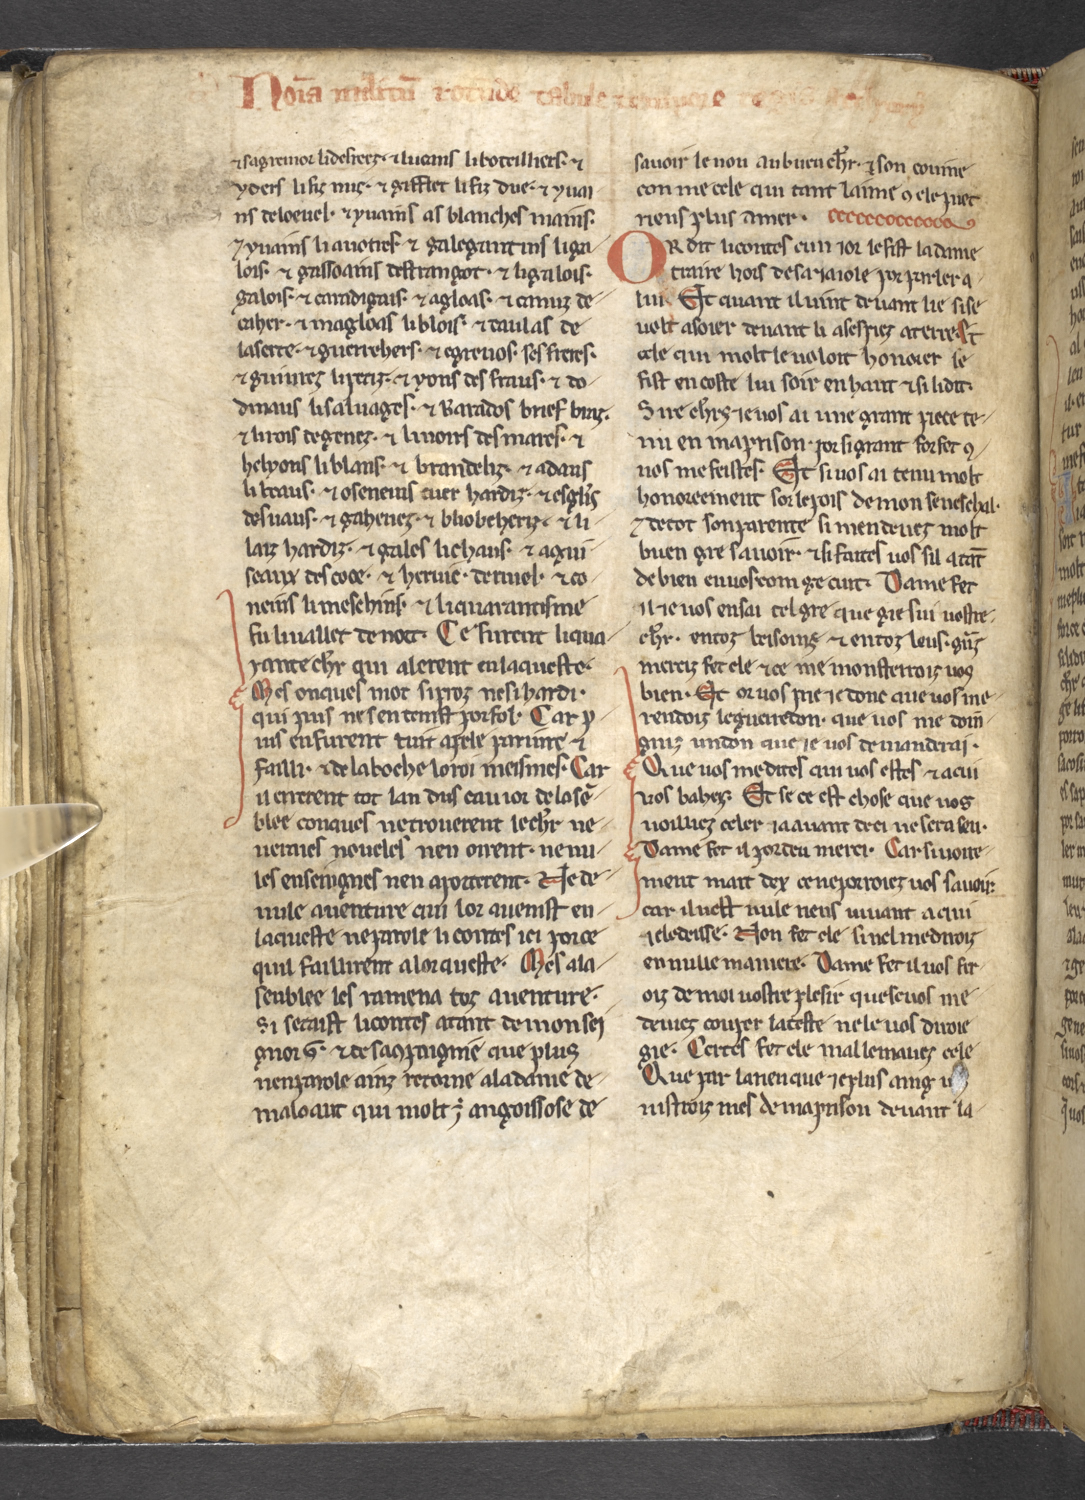 Noīa militū rotūde tabule tempore regis
⁊ sagremor li desrees · ⁊ lucains li boteilliers · ⁊
yders li fiz nuc · ⁊ gifflet li fiz due · ⁊ yuai
ns de loenel · ⁊ yuains as blanches mains ·
⁊ yuains li auoltres · ⁊ galegantins li ga
lois · ⁊ gassoains destrangot · ⁊ li galois ·
galois · ⁊ caradigais · ⁊ agloas · ⁊ canuz de
caher · ⁊ magloas li blois · ⁊ taulas de
laserte · ⁊ guerrehers · ⁊ egreuos · ses freres ·
⁊ guiurez li petiz · ⁊ yons des fraus · ⁊ do
dinaus li saluages · ⁊ Karados brief braz ·
⁊ li rois de genez · ⁊ li noirs des mares · ⁊
helyons li blans · ⁊ brandeliz · ⁊ adans
li beaus · ⁊ oseneins cuer hardiz · ⁊
desuaus · ⁊ gaheriez · ⁊ bliobeheriz · ⁊ li
laiz hardiz · ⁊ gales li chaus · ⁊ agui
seaux descoce · ⁊ heruie · de riuel · ⁊ co
neins li meschins · ⁊ li quarantisme
fu li uallet de nort · Ce furent li qua
rante chr̄ qui alerent en la queste ·
Mes onques mot si proz ne si hardi ·
qui puis ne sen tenist por fol · Car p
uis en furent tuit apele pariure ⁊
failli · ⁊ de la boche lo roi meismes · Car
il errerent tot lan dus cau ior de la sē
blee conques ne trouerent le chr̄ ne
ueraies noueles nen oirent · ne nu
les enseingnes nen aporterent · Ne de
nule auenture qui lor auenist en
la queste ne parole li contes ici porce
quil faillirent a lor queste · Mes ala
senblee les ramena toz auenture ·
Si se taist li contes atant de monsei
gnor .G. ⁊ de sa cōpaignie que plus
nen parole ainz retorne a la dame de
maloaut qui molt ē angoissose de
sauoir le non au buen chr̄ · ⁊ son couine
con me cele qui tant laime 9 ele puet
riens plus amer ·
OR dit li contes cun ior le fist la dame
traire hors de sa iaiole por parler a
lui · Et quant il uint deuant lie si se
uolt asoier deuant li a ses piez a terre · Et
cele qui molt le uoloit honorer le
fist en coste lui soir en haut ⁊ si li dit ·
Sire chrs̄ ie uos ai une grant piece te
nu en ma prison · por si grant forfet 9
uos me feistes · Et si uos ai tenu molt
honoreement sor le pois de mon seneschal ·
⁊ de tot son parente si men deuez molt
buen gre sauoir · ⁊ si faites uos sil a tāt
de bien en uos com ge cuit · Dame fet
il ie uos en sai tel gre que gie sui uostre
chr̄ · en toz besoinz ⁊ en toz leus ·
merciz fet ele ⁊ ce me monsterroiz uos
bien · Et or uos prie ie donc que uos me
rendoiz le guerredon · que uos me doin̄
gniz un don que ie uos demanderai ·
Que uos me dites qui uos estes ⁊ a qui
uos baheez · Et se ce est chose que uos
uoilliez celer ia auant dreci ne sera seu ·
Dame fet il por deu merci · Car si uoire
ment mait dex ce ne porroiez uos sauoir ·
car il nest nule riens uiuant a qui
ie le deisse · Non fet ele si nel me diroiz
en nulle maniere · Dame fet il uos fer
oiz de moi uostre plesir que se uos me
deuiez couper la teste ne le uos diroie
gie · Certes fet ele mal le mauez cele
Que par la rien que ie plus aing
nistroiz mes de ma prison deuant la